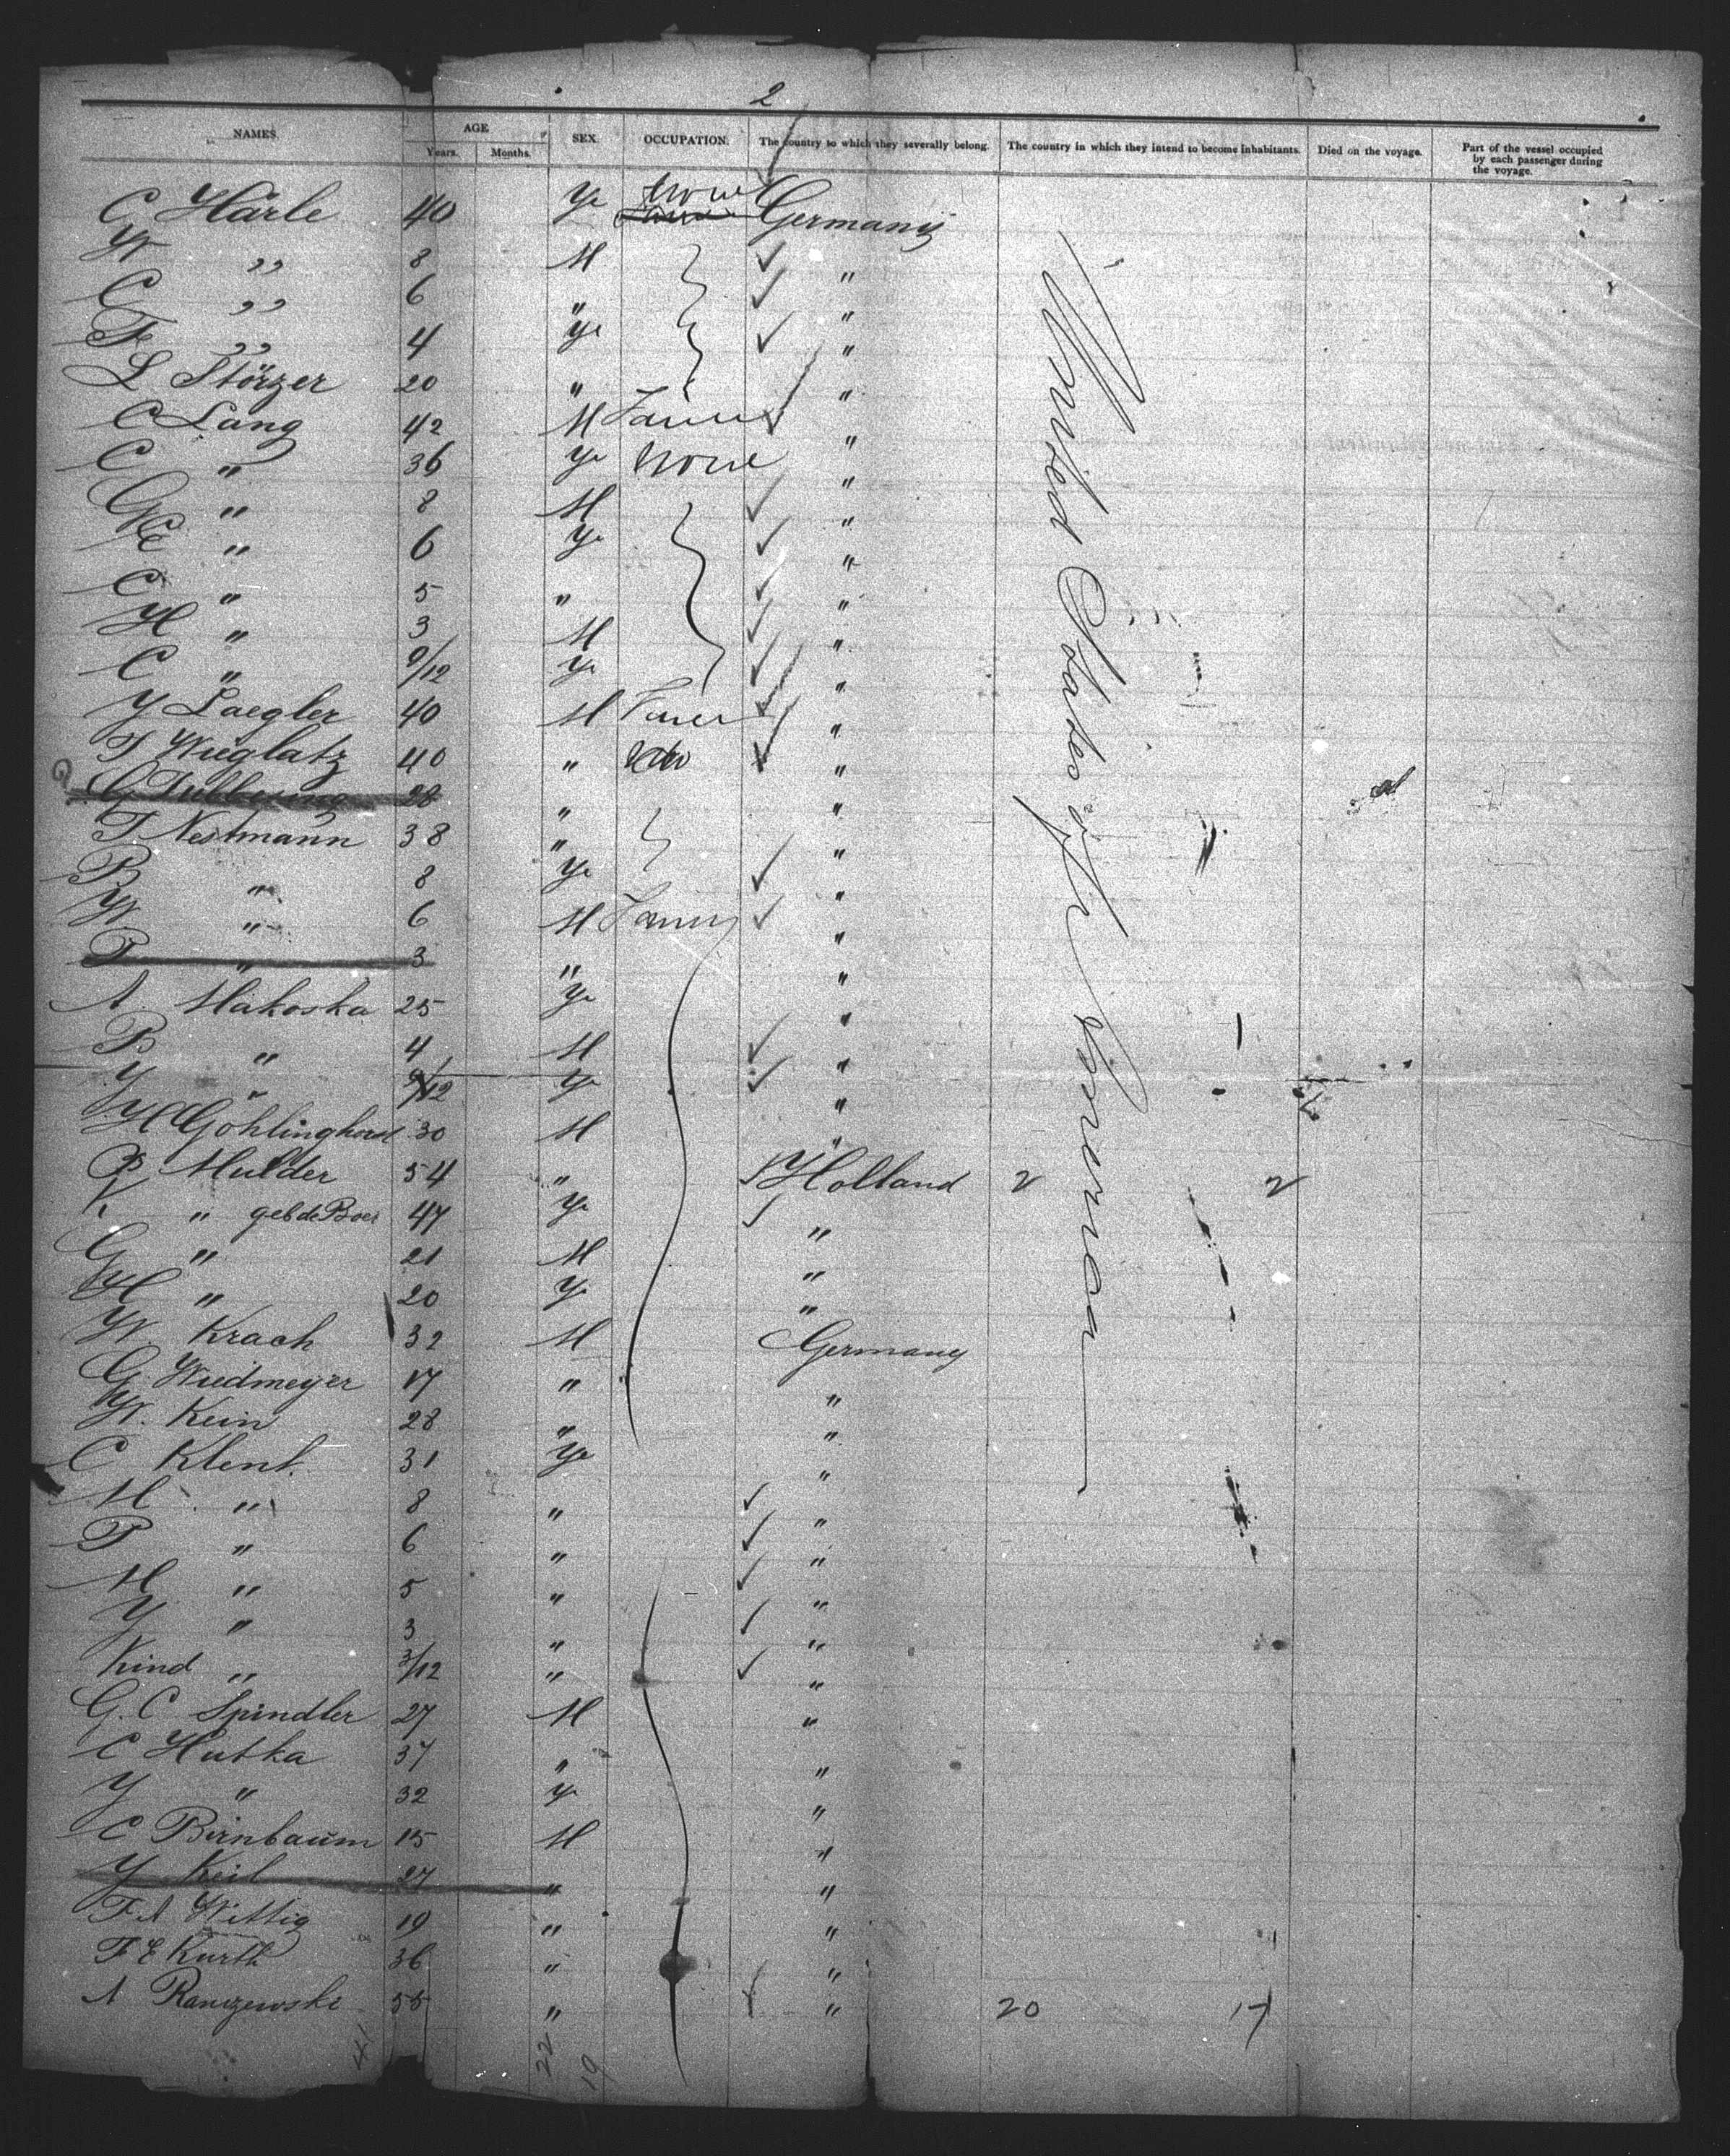 2
NAMES. AGE SEX. OCCUPATION. The country to which they severally belong. The country in which they intend to become inhabitants. Died on the voyage. Part of the vessel occupied by each passenger during the voyage.
Years. Months.
C Härle 40 Germany
W ,, 8 M "
C ,, 6 " "
,, 4 "
L Störzer 20 " "
C Lang 42 M "
C " 36 None "
G " 8 M "
" 6 "
C " 5 " "
H " 3 M "
C " 9/12 "
Y Laegler 40 M "
T Wieglatz 40 " "
G 28 " "
T Nestmann 38 " "
B " 8 "
W " 6 M "
P " 3 " "
A. Makoska 25 "
B " 4 M "
Y " 9/12 "
H Göhlinghorst 30 M "
B Mulder 54 " Holland 2 2
" geb de Boer 47 "
G " 21 M "
H " 20 "
W. Krach 32 M Germany
G. Wiedmeyer 17 " "
W. Kein 28 " "
C Klent. 31 "
M " 8 " "
P " 6 " "
M " 5 " "
Y " 3 " "
Kind " 3/12 " "
G. C Spindler 27 M "
C Hutka 37 " "
Y " 32 "
C Birnbaum 15 M "
Y Keil 27 " "
F. A Wittig 19 " "
F E Kurth 36 " "
A 55 " " 20 17
41 22 19
United States of America